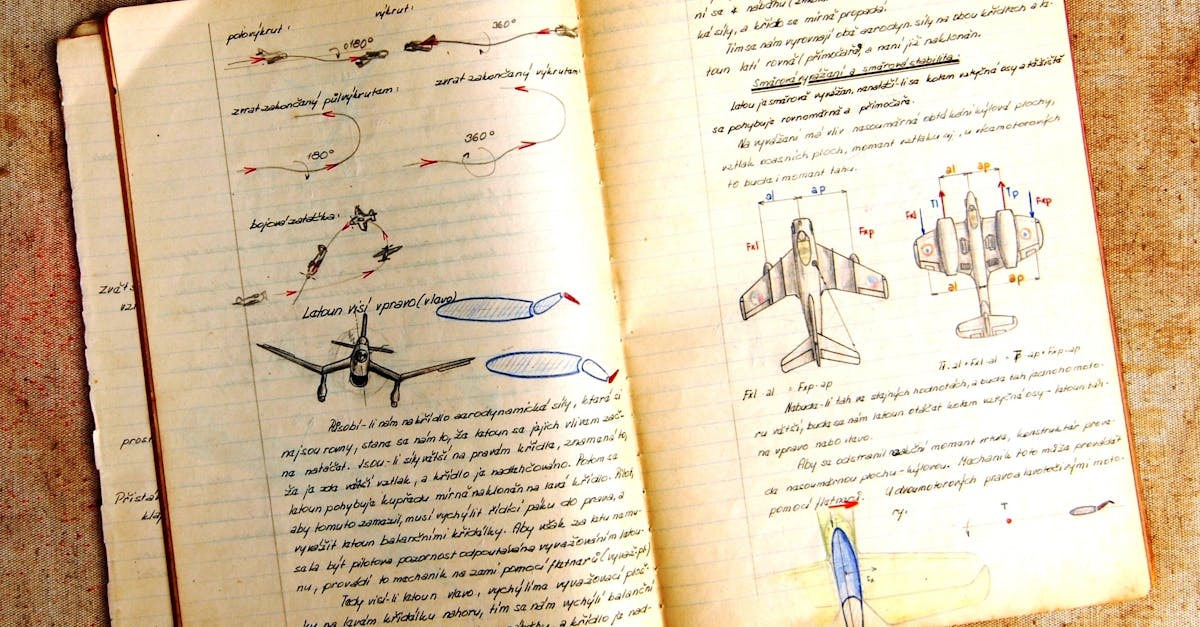 polovýkrut:
výkrut:
180°
360°
zvrat zakončený půlvýkrutem:
zvrat zakončený výkrutem:
180°
360°
bojová zatáčka:
Letoun visí vpravo (vlevo)
Působí-li nám na křídlo aerodynamické síly, které si
nejsou rovny, stane se nám to, že letoun se jejich vlivem zač-
ne natáčet. Jsou-li síly větší na pravém křídle, znamená to,
že je zde větší vztlak, a křídlo je nadlehčováno. Potom se
letoun pohybuje kupředu mírně nakloněn na levé křídlo. Pilot,
aby tomuto zamezil, musí vychýlit řídící páku do prava, a
vyvážit letoun balančními křidélky. Aby však za letu nemu-
sela být pilotova pozornost odpoutávána vyvažováním letou-
nu, provádí to mechanik na zemi pomocí fletnerů (vyvaž.pl)
Tedy visí-li letoun vlevo, vychýlíme vyvažovací ploš-
ky na levém křidélku nahoru, tím se nám vychýlí balanční
a křídlo je nad-
Zvětš
vz
pros
Přistá
kla
ní se
ké síly, a křídlo se mírně propadá.
Tím se nám vyrovnají obě aerodyn. síly na obou křídlech a le-
toun letí rovně (přímočaře), a není již nakloněn.
Směrové vyvážení a směrová stabilita.
Letoun je směrově vyvážen, nenatáčí-li se kolem vztyčné osy a těžiště
se pohybuje rovnoměrně a přímočaře.
Na vyvážení má vliv nesouměrné obtékání kýlové plochy,
vztlak ocasních ploch, moment vztlaku aj., u vícemotorových
to bude i moment tahu.
al ap
Fxl Fxp
al ap
Fxl Tl Tp Fxp
al ap
Fxl·al = Fxp·ap
Tl·al+Fxl·al = Tp·ap+Fxp·ap
Nebude-li tah ve stejných hodnotách, a bude tah jednoho moto-
ru větší, bude se nám letoun otáčet kolem vztyčné osy - letoun táh-
ne vpravo nebo vlevo.
Aby se odstranil reakční moment vrtule, konstruktér prove-
de nesouměrnou plochu - kýlovou. Mechanik toto může provádět
pomocí fletnerů. U dvoumotorových pravo a levotočivými moto-
ry.
T